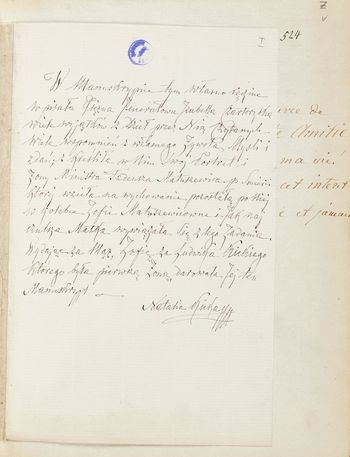 I
524
V
W Manuskrypcie tym własnoręcznie
wpisała Xiężna Generałowa Izabella Czartoryska
wiele wyjątków z Dzieł przez Nią czytanych
wiele wspomnień z własnego żywota, Myśli i
zdań; skreśliła w nim swój Portret i
Żony Ministra Tadeusza Matuszewicza, po śmierci
której wzięła na wychowanie pozostałą po Niej
Zofię Matuszewiczównę i jak naj
czulsza Matka wywiązała się z tego zadania.
Wydając za Mąż Zofię za Ludwika Kickiego
którego była pierwszą Żoną, darowała Jej ten
Manuskrypt
Natalia Kicka
de
Amitié
ma vie
cet
et jamais